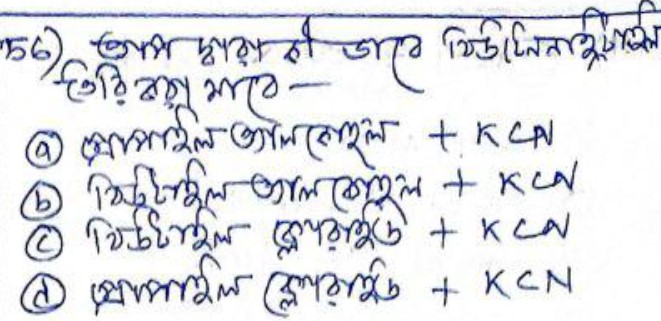 56) তাপ দ্বারা কী ভাবে বিউটেননাইট্রাইল
তৈরি করা যাবে —
ⓐ প্রোপাইল অ্যালকোহল + KCN
ⓑ বিউটাইল অ্যালকোহল + KCN
ⓒ বিউটাইল ক্লোরাইড + KCN
ⓓ প্রোপাইল ক্লোরাইড + KCN